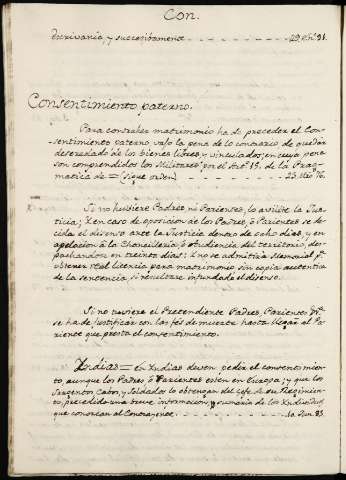 Con.
Escrivania, y sucesibamente - - - - 29. En.º 91.
Consentimiento paterno.
Para contraher matrimonio ha de preceder el Con-
sentimiento paterno vajo la pena de lo contrario de quedar
deseredado de los bienes libres, y vinculados; en cuya pena
son comprendidos los Militares por el Art.º 15. de la Prag-
matica de = (sigue orden) - - - - 23. Mzo 76.
Si no hubiere Padres, ni Parientes, lo avilite la Jus-
ticia; Y en caso de oposicion de los Padres, ó Parientes se de-
cida el disenso ante la Justicia dentro de ocho dias, y en
apelacion á la Chancilleria, ó Audiencia del territorio, des-
pachandose en treinta dias; Y no se admitirá Memorial p.ª
obtener Real licencia para matrimonio sin copia autentica
de la sentencia, si resultare infundado el disenso.
Si no tuviere el Pretendiente Padres, Parientes &.ª
se ha de justificar con las feés de muerte hasta llegar al Pa-
riente que presta el consentimiento.
Yndias = En Yndias deven pedir el consentimien
to aunque los Padres ó Parientes esten en Europa; y que los
Sargentos Cabos, y Soldados lo obtengan del Gefe de su Regimien-
to, precedida una breve informacion, y sumaria de los Yndividuos
que conozcan al Contrayente. - - - - 10. Jun. 83.